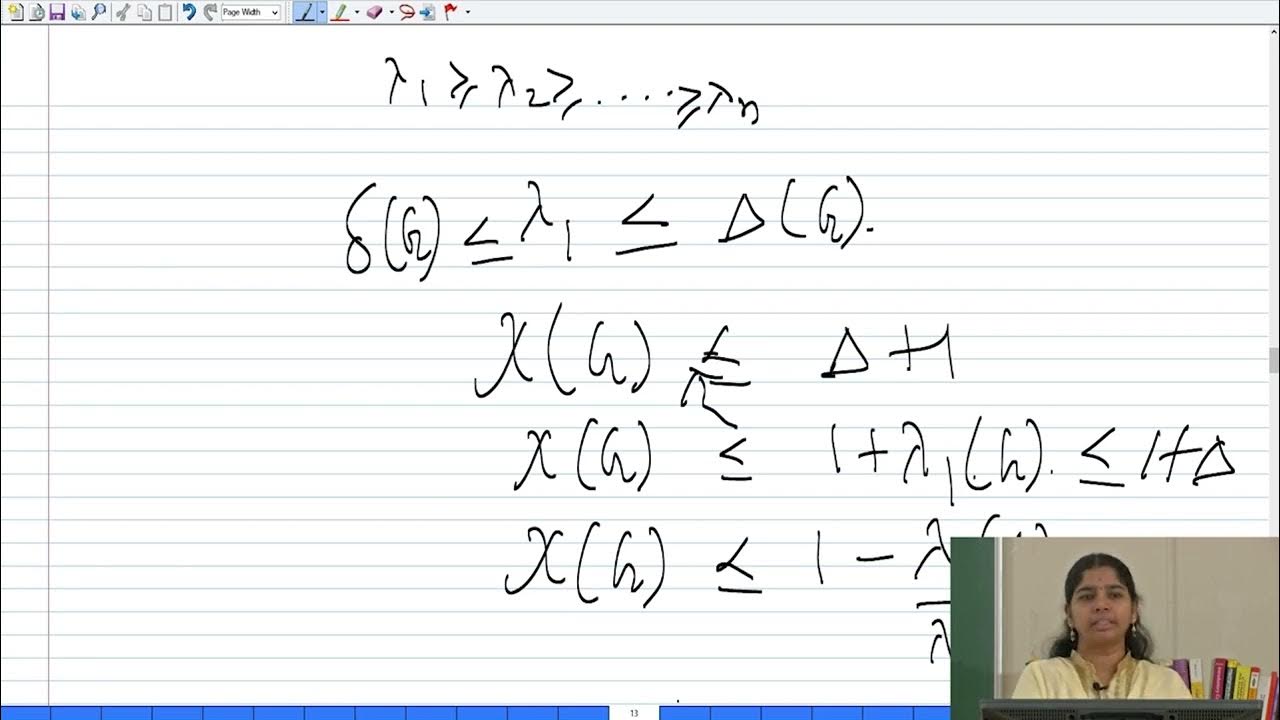 Page Width
λ₁ ≥ λ₂ ≥ ..... ≥ λn
δ(G) ≤ λ₁ ≤ Δ(G).
χ(G) ≤ Δ+1
χ(G) ≤ 1+λ₁(G). ≤ 1+Δ
χ(G) ≤ 1 - λ
λ
13